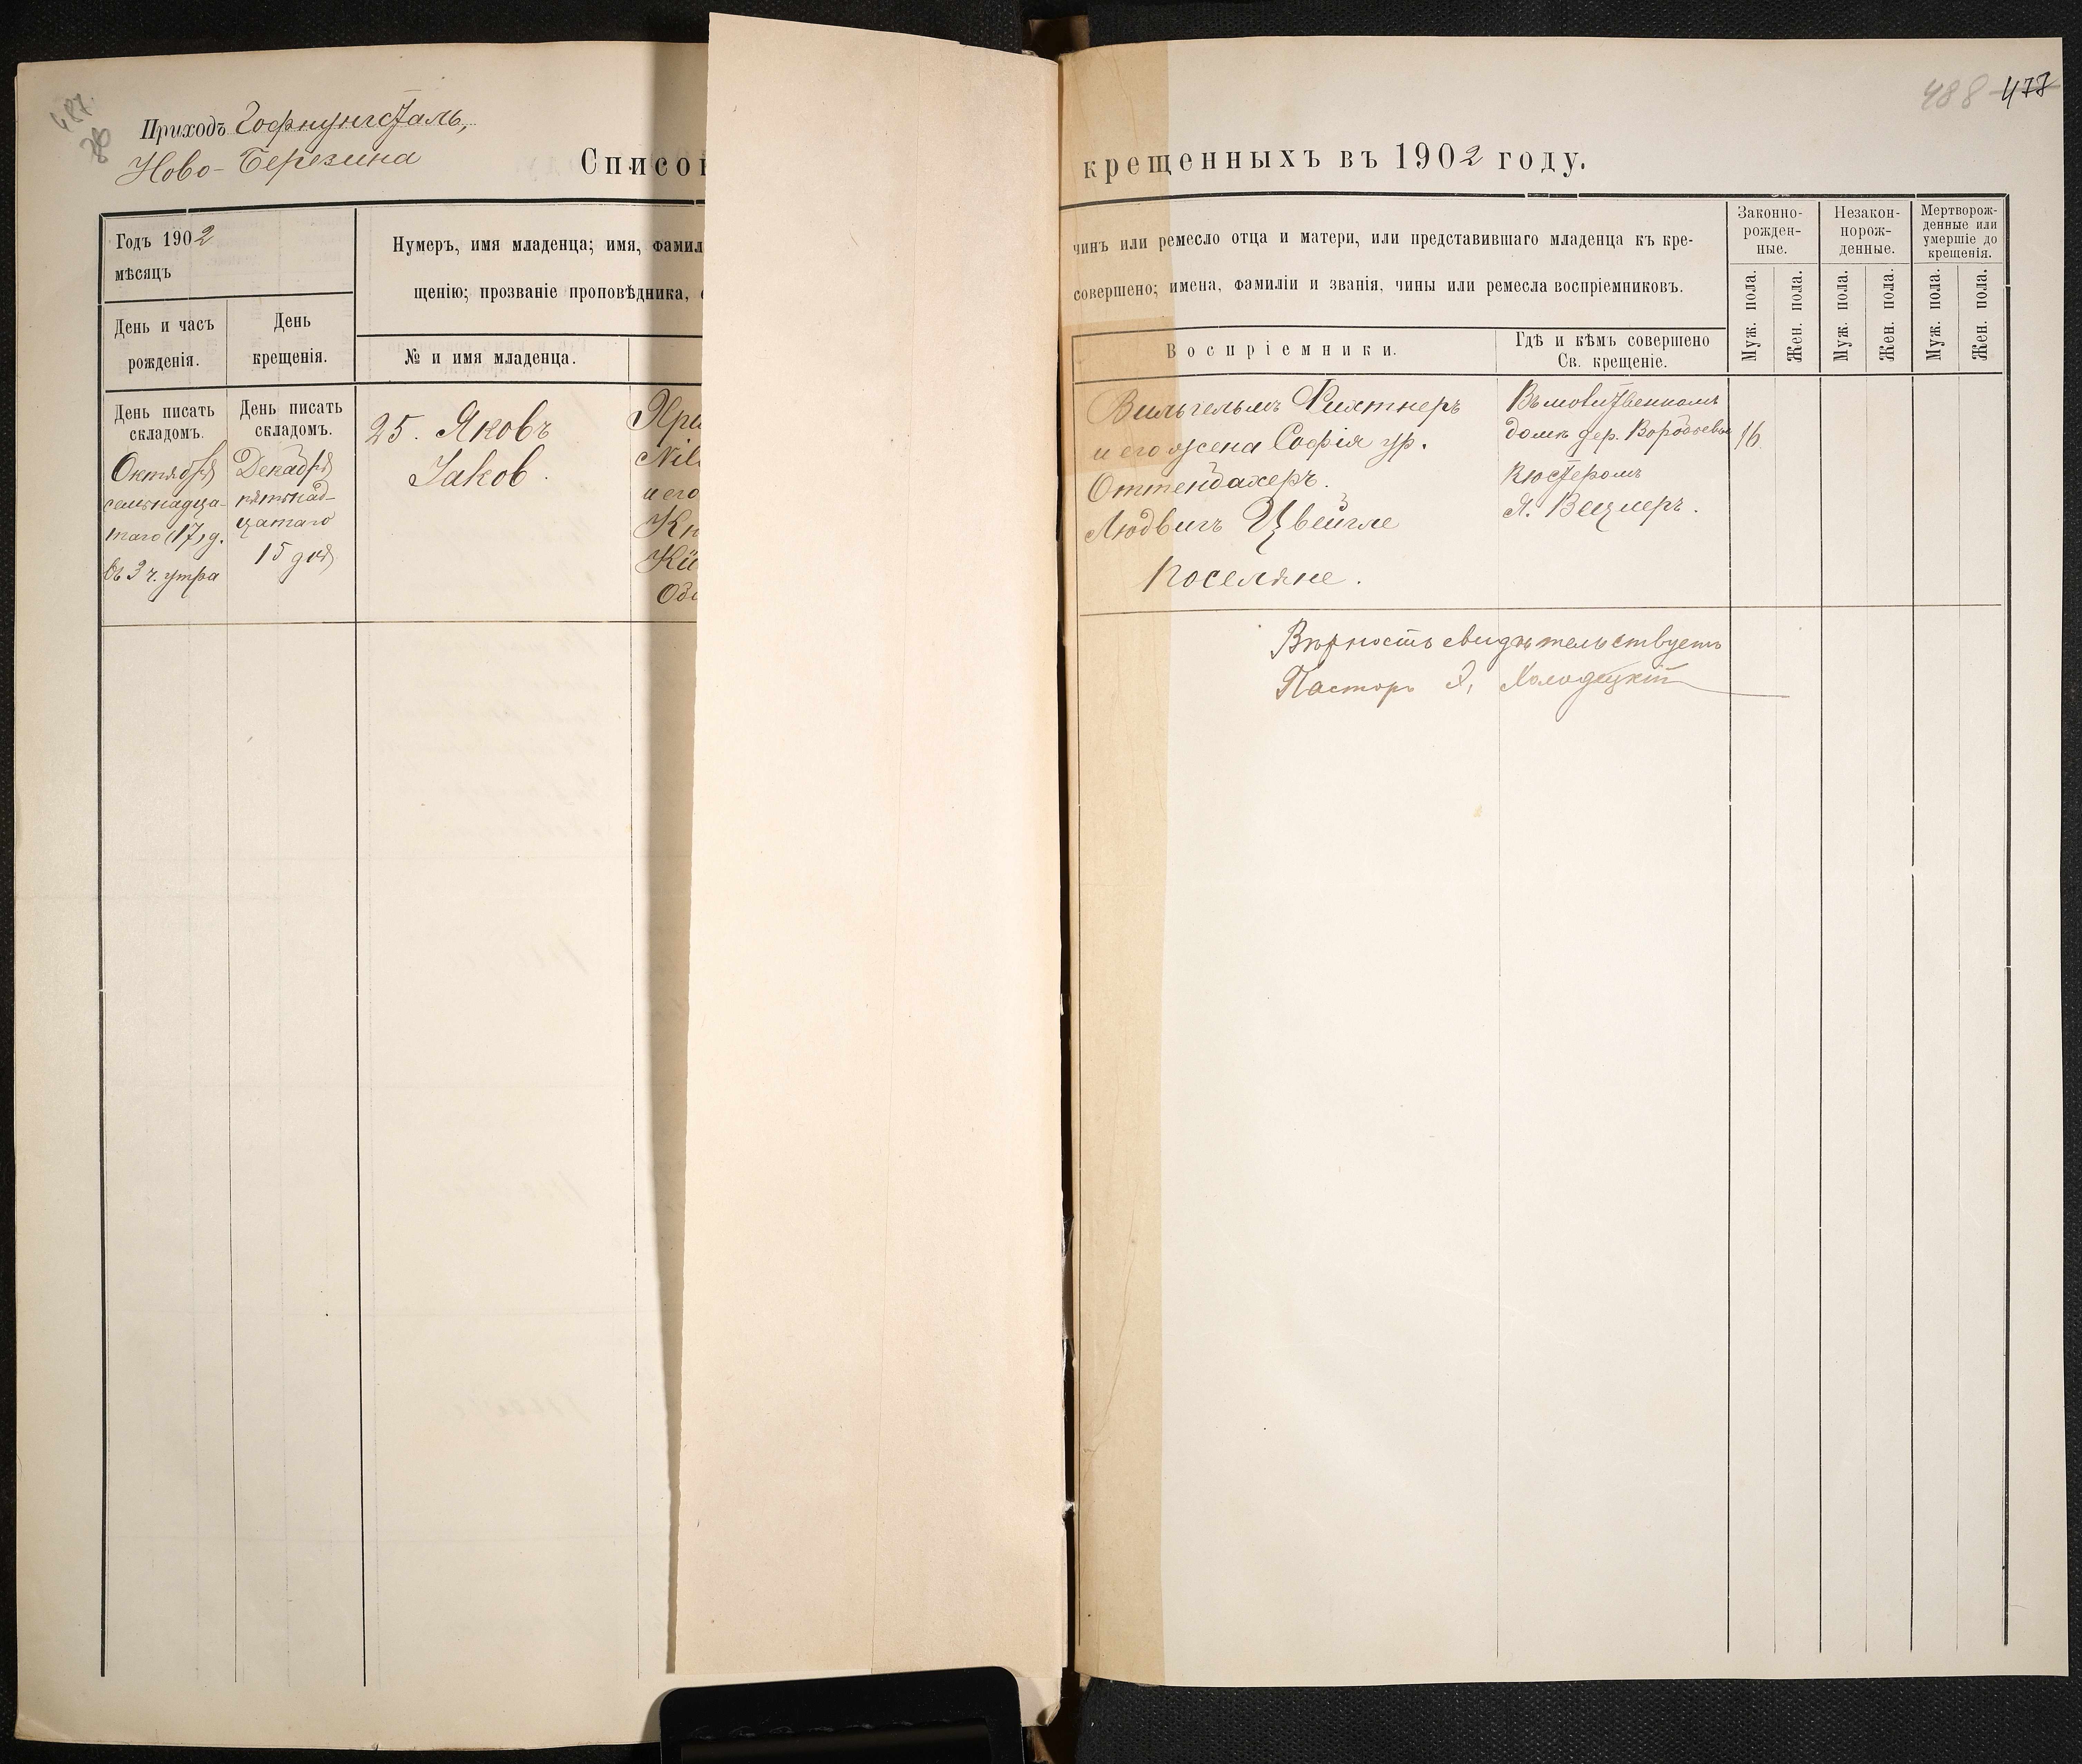 487
Приходъ Гофнунгсталь,
Ново-Березина
Списо
Годъ 1902
мѣсяцъ
День и часъ
рожденія.
День
крещенія.
Нумеръ, имя младенца; имя, фамил
щенію; прозваніе проповѣдника,
№ и имя младенца.
День писать
складомъ.
Октября
семьнадца-
таго (17) д.
въ 3 ч. утра
День писать
складомъ.
Декабря
пятьнад-
цатаго
15 дня
25. Яковъ
Jakob.
Хри
и его
Кю
488 478
крещенныхъ въ 1902 году.
чинъ или ремесло отца и матери, или представившаго младенца къ кре-
совершено; имена, фамиліи и званія, чины или ремесла воспріемниковъ.
Воспріемники.
Гдѣ и кѣмъ совершено
Св. крещеніе.
Законно-
рожден-
ные.
Незакон-
норож-
денные.
Мертворож-
денные или
умершіе до
крещенія.
Муж. пола.
Жен. пола.
Муж. пола.
Жен. пола.
Муж. пола.
Жен. пола.
Вильгельмъ Рихтнеръ
и его жена Софія ур.
Оттендахеръ.
Людвигъ Цвейгле
Поселяне.
Въ молитвенномъ
домѣ дер. Воробьевы
Кюстеромъ
Я. Вецлеръ.
16
Вѣрность свидѣтельствуетъ
Пасторъ Я. Холодецкій